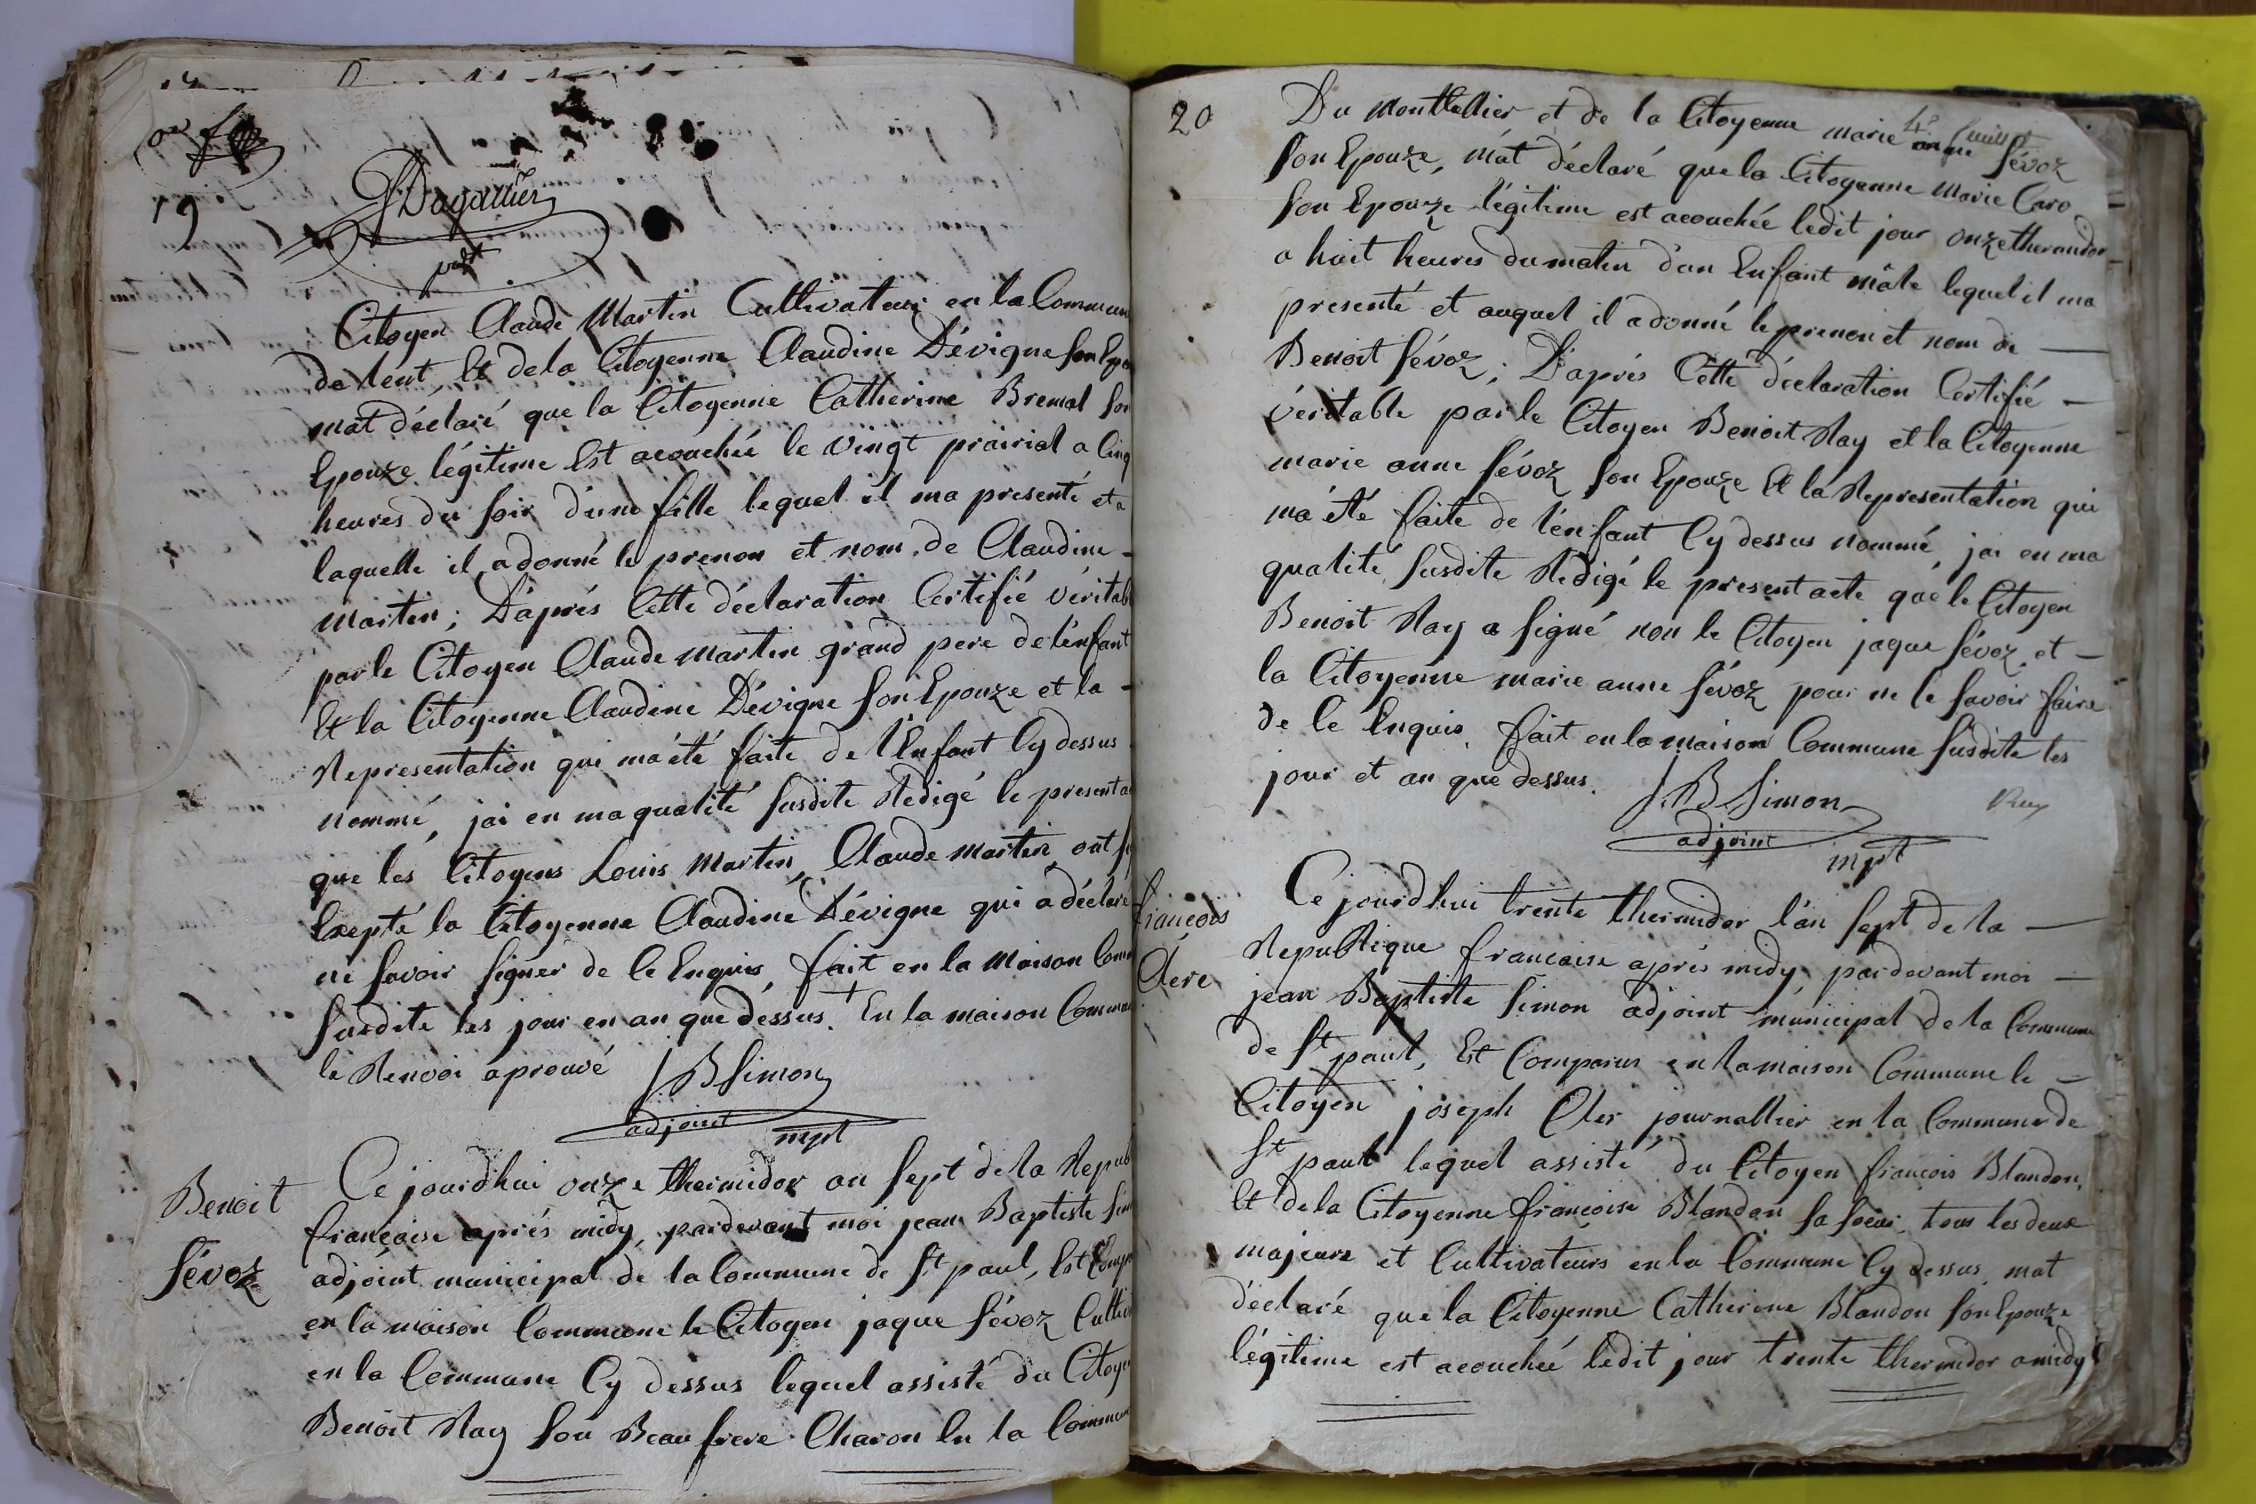 19
JDagallier
pdt
Citoyen Claude Martin Cultivateur en la Commun
de lent, Et de la Citoyenne Claudine Dévigne son Epou
mat déclaré que la Citoyenne Catherine Bremal son
Epouze légitime Est acouchée le vingt prairial a Cinq
heures du soir d'une fille lequel il ma presenté et a
laquelle il a donné le prenom et nom de Claudine -
Martin ; D'aprés Cette déclaration Certifié véritabl
par le Citoyen Claude Martin grand pere de l'enfant
Et la Citoyenne Claudine Dévigne son Epouze et la -
Representation qui ma été faite de l'Enfant Cy dessus
nommé, jai en ma qualité susdite Rédigé le present a
que les Citoyens Louis Martin, Claude Martin ont si
Exepté la Citoyenne Claudine Dévigne qui a déclaré
ne savoir signer de Ce Enquis, fait en la Maison Comm
susdite les jour en an que dessus. + En la maison Commun
le Renvoi aprouvé
JB Simon
adjoint mpl
Benoit
févoz
Ce jourdhui onze thermidor an sept de la Repub
francaise aprés midy, pardevant moi jean Baptiste Sim
adjoint municipal de la Commune de St paul, Est Comp
en la maison Commune le Citoyen jaque févoz Cultiv
en la Commune Cy dessus lequel assisté du Citoye
Benoit Ray son Beau frere Charon En la Commun
20
Du Montellier et de la Citoyenne marie anne févoz
son Epouze, m'at déclaré que la Citoyenne Marie Caro
son Epouze légitime est acouchée ledit jour onze thermidor
a huit heures du matin d'un Enfant mâle lequel il ma
presenté et auquel il a donné le prenom et nom de —
Benoit févoz ; D'aprés Cette déclaration Certifié —
véritable par le Citoyen Benoit Ray et la Citoyenne
marie anne févoz son Epouze Et la Representation qui
ma été faite de l'enfant Cy dessus nommé, jai en ma
qualité susdite Rédigé le present acte que le Citoyen
Benoit Ray a signé non le Citoyen jaque févoz et —
la Citoyenne marie anne févoz pour ne le savoir faire
de Ce Enquis. fait en la maison Commune susdite les
jour et an que dessus.
JB Simon
adjoint mpl
Rey
francois
Clere
Ce jourdhui trente thermidor l'an sept de la —
Republique francaise aprés midy pardevant moi —
jean Baptiste Simon adjoint municipal de la Commune
de St paul, Est Comparus en la maison Commune le —
Citoyen joseph Cler journallier en la Commune de
St paul lequel assisté du Citoyen francois Blandon,
Et de la Citoyenne francoise Blandon sa soeur, tous les deux
majeurs et Cultivateurs en la Commune Cy dessus mat
déclaré que la Citoyenne Catherine Blandon son Epouze
légitime est acouchée ledit jour trente thermidor a midy